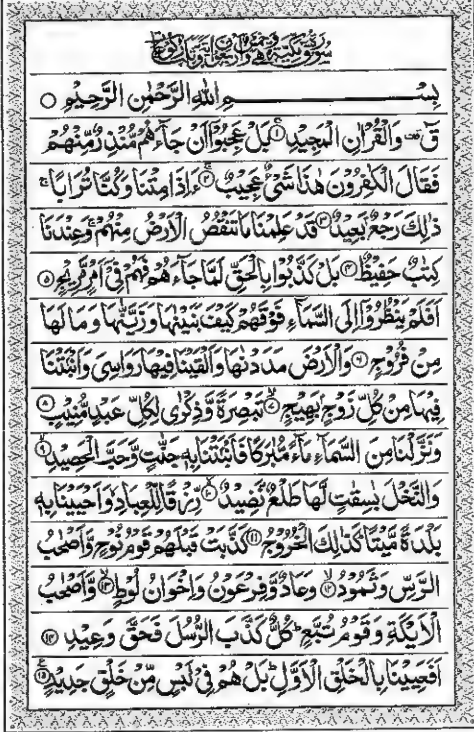 بِسْمِ اللهِ الرَّحْمٰنِ الرَّحِيْمِ ○
قٓ وَالْقُرْاٰنِ الْمَجِيْدِ ۝۱ بَلْ عَجِبُوْۤا اَنْ جَآءَهُمْ مُّنْذِرٌ مِّنْهُمْ
فَقَالَ الْكٰفِرُوْنَ هٰذَا شَيْءٌ عَجِيْبٌ ۝۲ ءَاِذَا مِتْنَا وَكُنَّا تُرَابًا ۚ
ذٰلِكَ رَجْعٌۢ بَعِيْدٌ ۝۳ قَدْ عَلِمْنَا مَا تَنْقُصُ الْاَرْضُ مِنْهُمْ ۚ وَعِنْدَنَا
كِتٰبٌ حَفِيْظٌ ۝۴ بَلْ كَذَّبُوْا بِالْحَقِّ لَمَّا جَآءَهُمْ فَهُمْ فِيْۤ اَمْرٍ مَّرِيْجٍ ۝۵
اَفَلَمْ يَنْظُرُوْۤا اِلَى السَّمَآءِ فَوْقَهُمْ كَيْفَ بَنَيْنٰهَا وَزَيَّنّٰهَا وَمَا لَهَا
مِنْ فُرُوْجٍ ۝۶ وَالْاَرْضَ مَدَدْنٰهَا وَاَلْقَيْنَا فِيْهَا رَوَاسِيَ وَاَنْۢبَتْنَا
فِيْهَا مِنْ كُلِّ زَوْجٍۭ بَهِيْجٍ ۝۷ تَبْصِرَةً وَّذِكْرٰى لِكُلِّ عَبْدٍ مُّنِيْبٍ ۝۸
وَنَزَّلْنَا مِنَ السَّمَآءِ مَآءً مُّبٰرَكًا فَاَنْۢبَتْنَا بِهٖ جَنّٰتٍ وَّحَبَّ الْحَصِيْدِ ۝۹
وَالنَّخْلَ بٰسِقٰتٍ لَّهَا طَلْعٌ نَّضِيْدٌ ۝۱۰ رِّزْقًا لِّلْعِبَادِ ۙ وَاَحْيَيْنَا بِهٖ
بَلْدَةً مَّيْتًا ؕ كَذٰلِكَ الْخُرُوْجُ ۝۱۱ كَذَّبَتْ قَبْلَهُمْ قَوْمُ نُوْحٍ وَّاَصْحٰبُ
الرَّسِّ وَثَمُوْدُ ۝۱۲ وَعَادٌ وَّفِرْعَوْنُ وَاِخْوَانُ لُوْطٍ ۝۱۳ وَّاَصْحٰبُ
الْاَيْكَةِ وَقَوْمُ تُبَّعٍ ؕ كُلٌّ كَذَّبَ الرُّسُلَ فَحَقَّ وَعِيْدِ ۝۱۴
اَفَعَيِيْنَا بِالْخَلْقِ الْاَوَّلِ ؕ بَلْ هُمْ فِيْ لَبْسٍ مِّنْ خَلْقٍ جَدِيْدٍ ۝۱۵